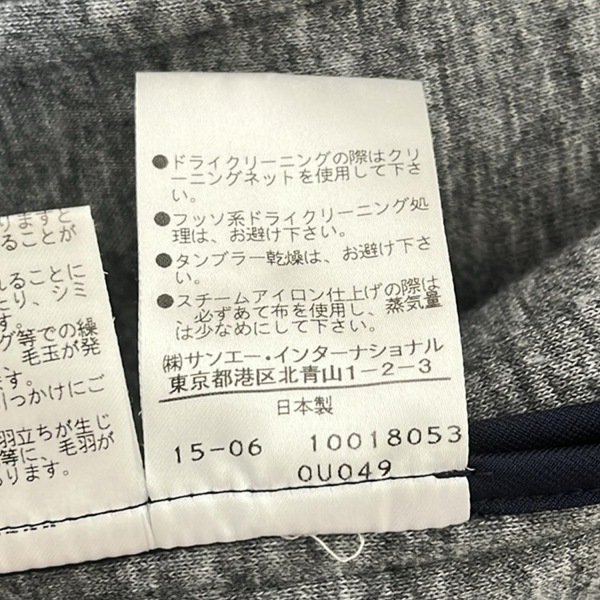 りますと
ることが
れることに
とり、シミ
す。
グ等での繰
毛玉が発
ます。
引っかけにご
羽立ちが生じ
等に、毛羽が
あります。
●ドライクリーニングの際はクリ
ーニングネットを使用して下さ
い。
●フッソ系ドライクリーニング処
理は、お避け下さい。
●タンブラー乾燥は、お避け下さ
い。
●スチームアイロン仕上げの際は
、必ずあて布を使用し、蒸気量
は少なめにして下さい。
㈱サンエー・インターナショナル
東京都港区北青山1-2-3
日本製
15-06 10018053
0U049